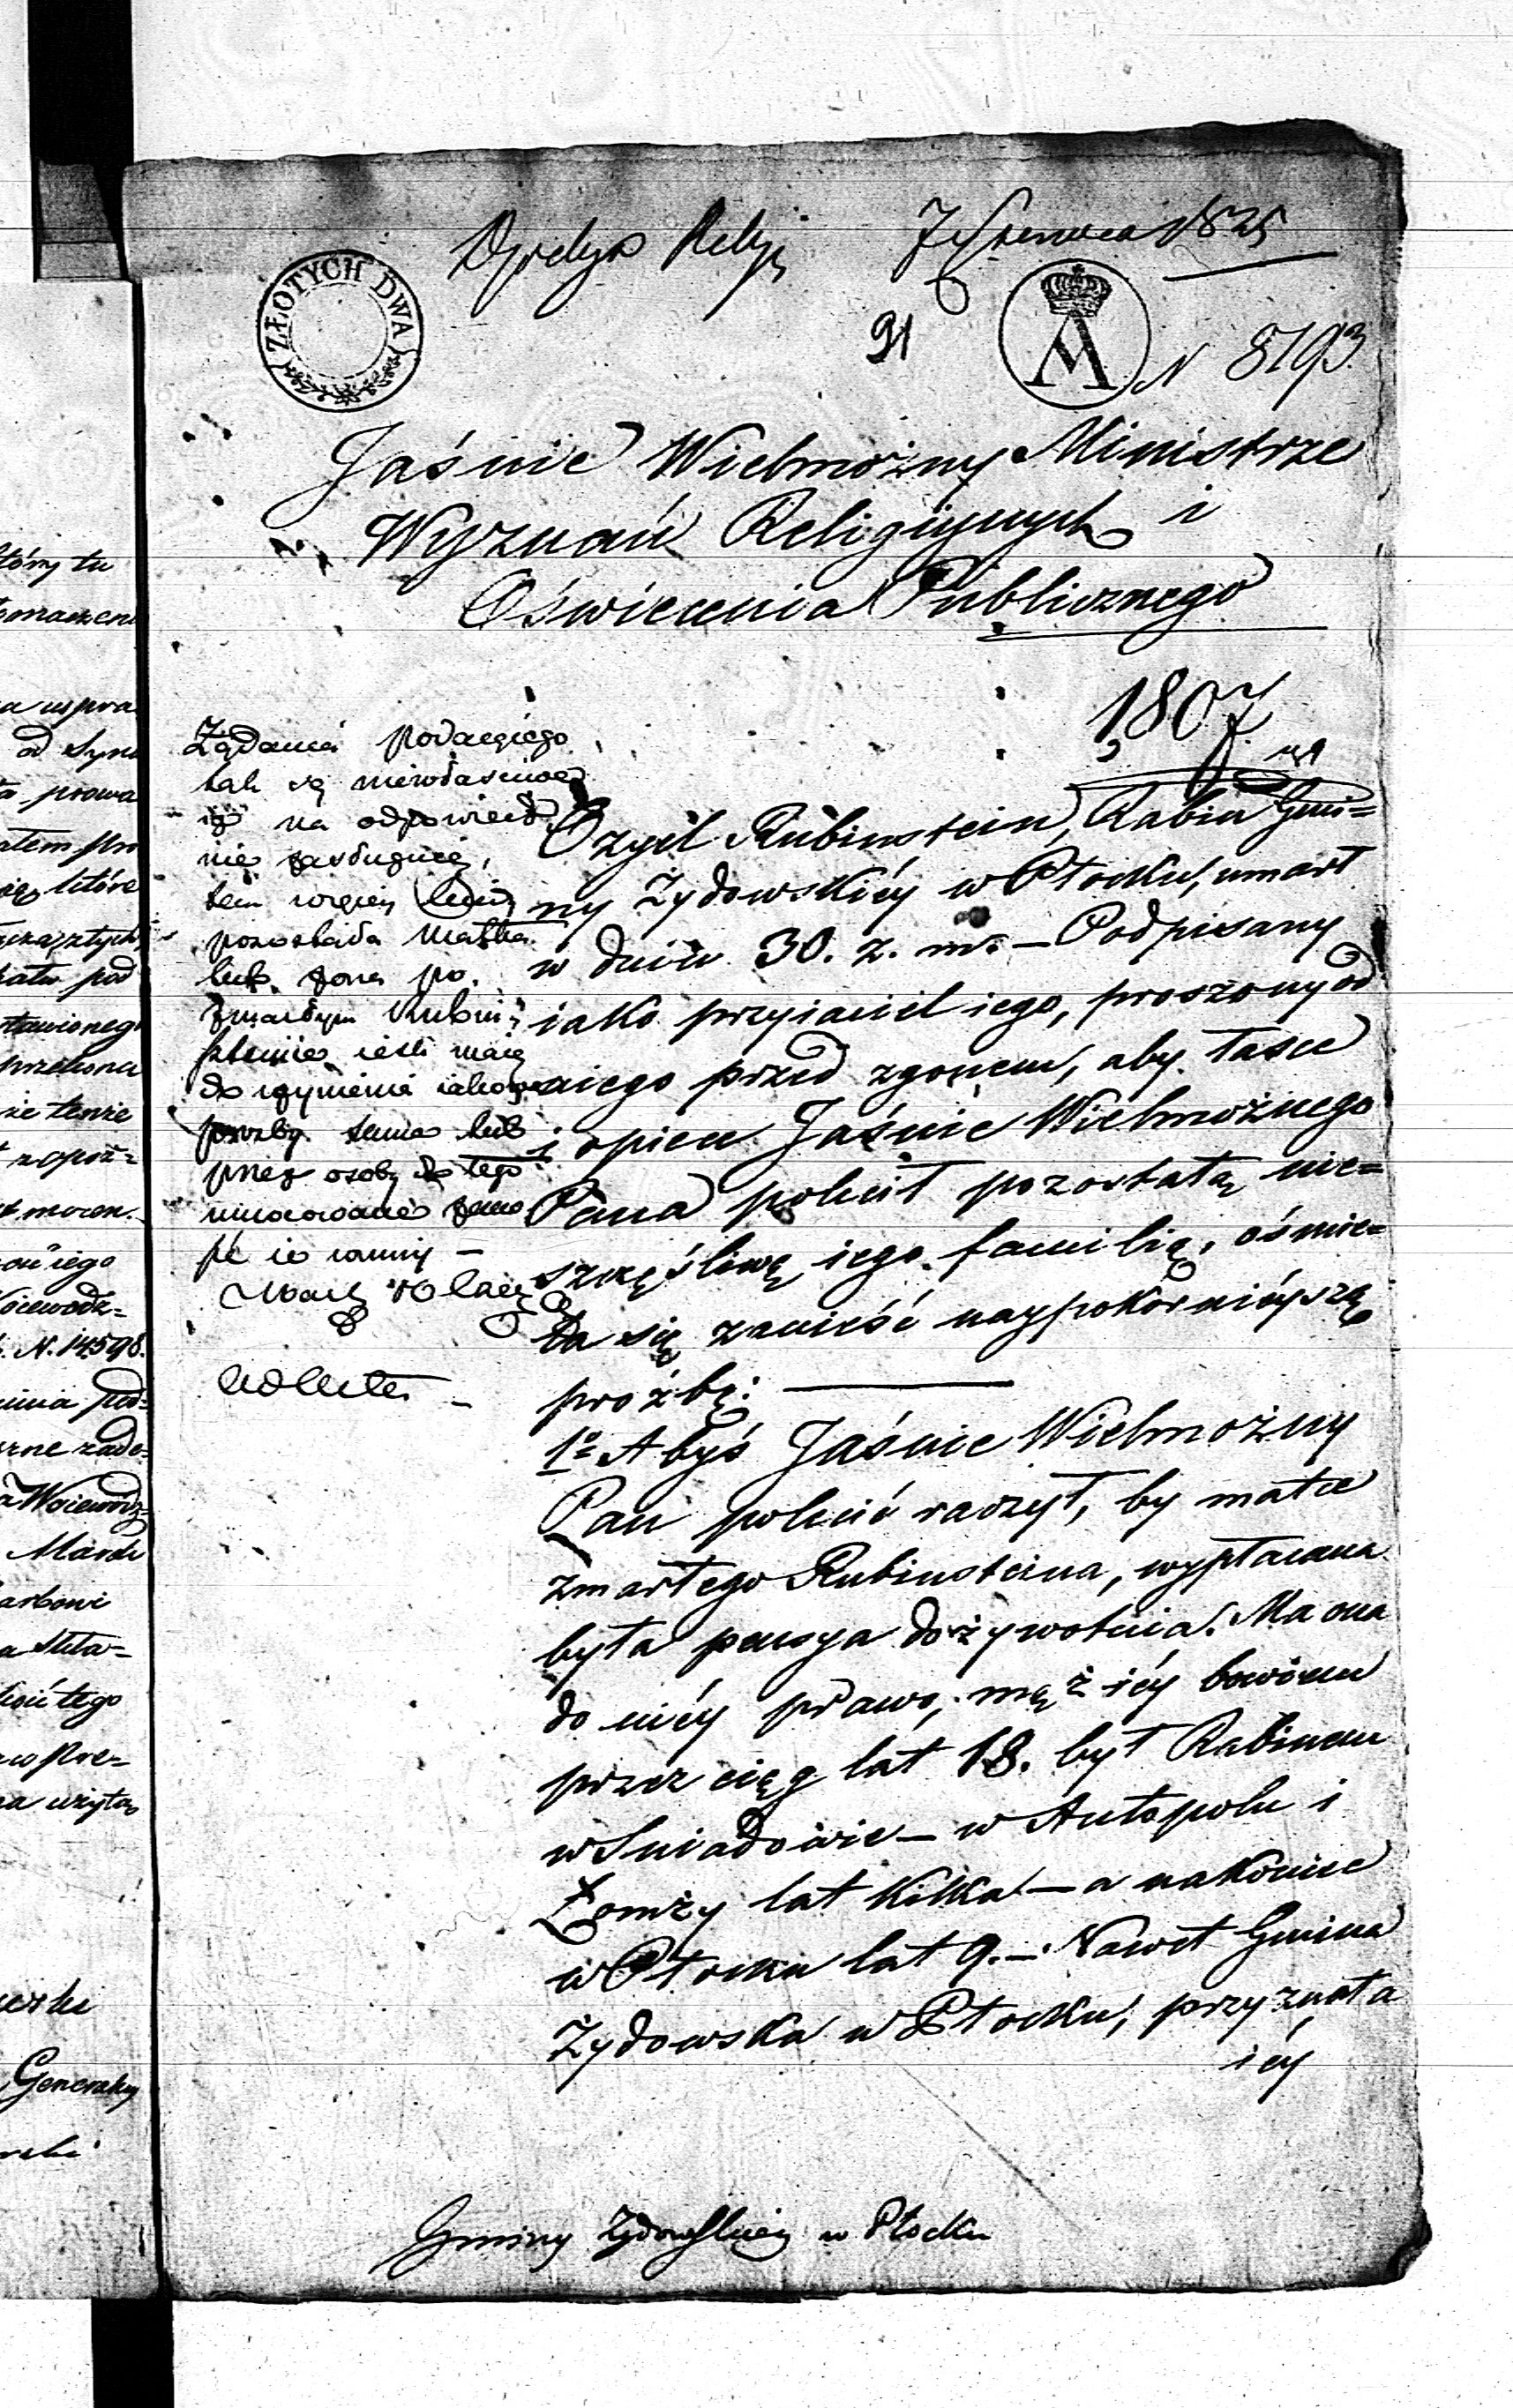 7 Czerwca 1825
ZŁOTYCH DWA
91
A
N 8793.
Jaśnie Wielmożny Ministrze
Wyznań Religiynych i
Oświecenia Publicznego
1807
Żądania podaiącego
tak są niewłaściwe
iż na odpowiedź
nie zasługuią,
tem więcey
pozostała Matka
lub żona po
zmarłym Rubin=
steinie ieśli maią
do czynienia iakową
prozbę same lub
przez osoby do tego
umocowane
winny –
Odzyel Rubinstein, Rabin Gmi=
ny Żydowskiéy w Płocku, umarł
w dniu 30. z. m. – Podpisany
iako przyiaciel iego, proszony od
niego przed zgonem, aby łasce
i opiece Jaśnie Wielmożnego
Pana polecił pozostałą nie=
szczęśliwą iego familię, ośmie=
la się zanieść naypokornieyszą
proźbę: —
1º Abyś Jaśnie Wielmożny
Pan polecić raczył, by matce
zmarłego Rubinsteina, wypłacana
była pensya dożywotnia. Ma ona
do niéy prawo, mąż iéy bowiem
przez ciąg lat 18. był Rabinem
w Sniadowie – w Antopolu i
Łomży lat kilka – a nakoniec
w Płocku lat 9. – Nawet Gmina
Żydowska w Płocku, przyznała
iéy
Gminy Żydowskiey w Płocku
tóry tu
a uspra
od Syna
atem
się które
przekona
że tenże
zapóź=
iego
Woiewódz=
N. 14598.
Woiewódz=
tego
Generalny